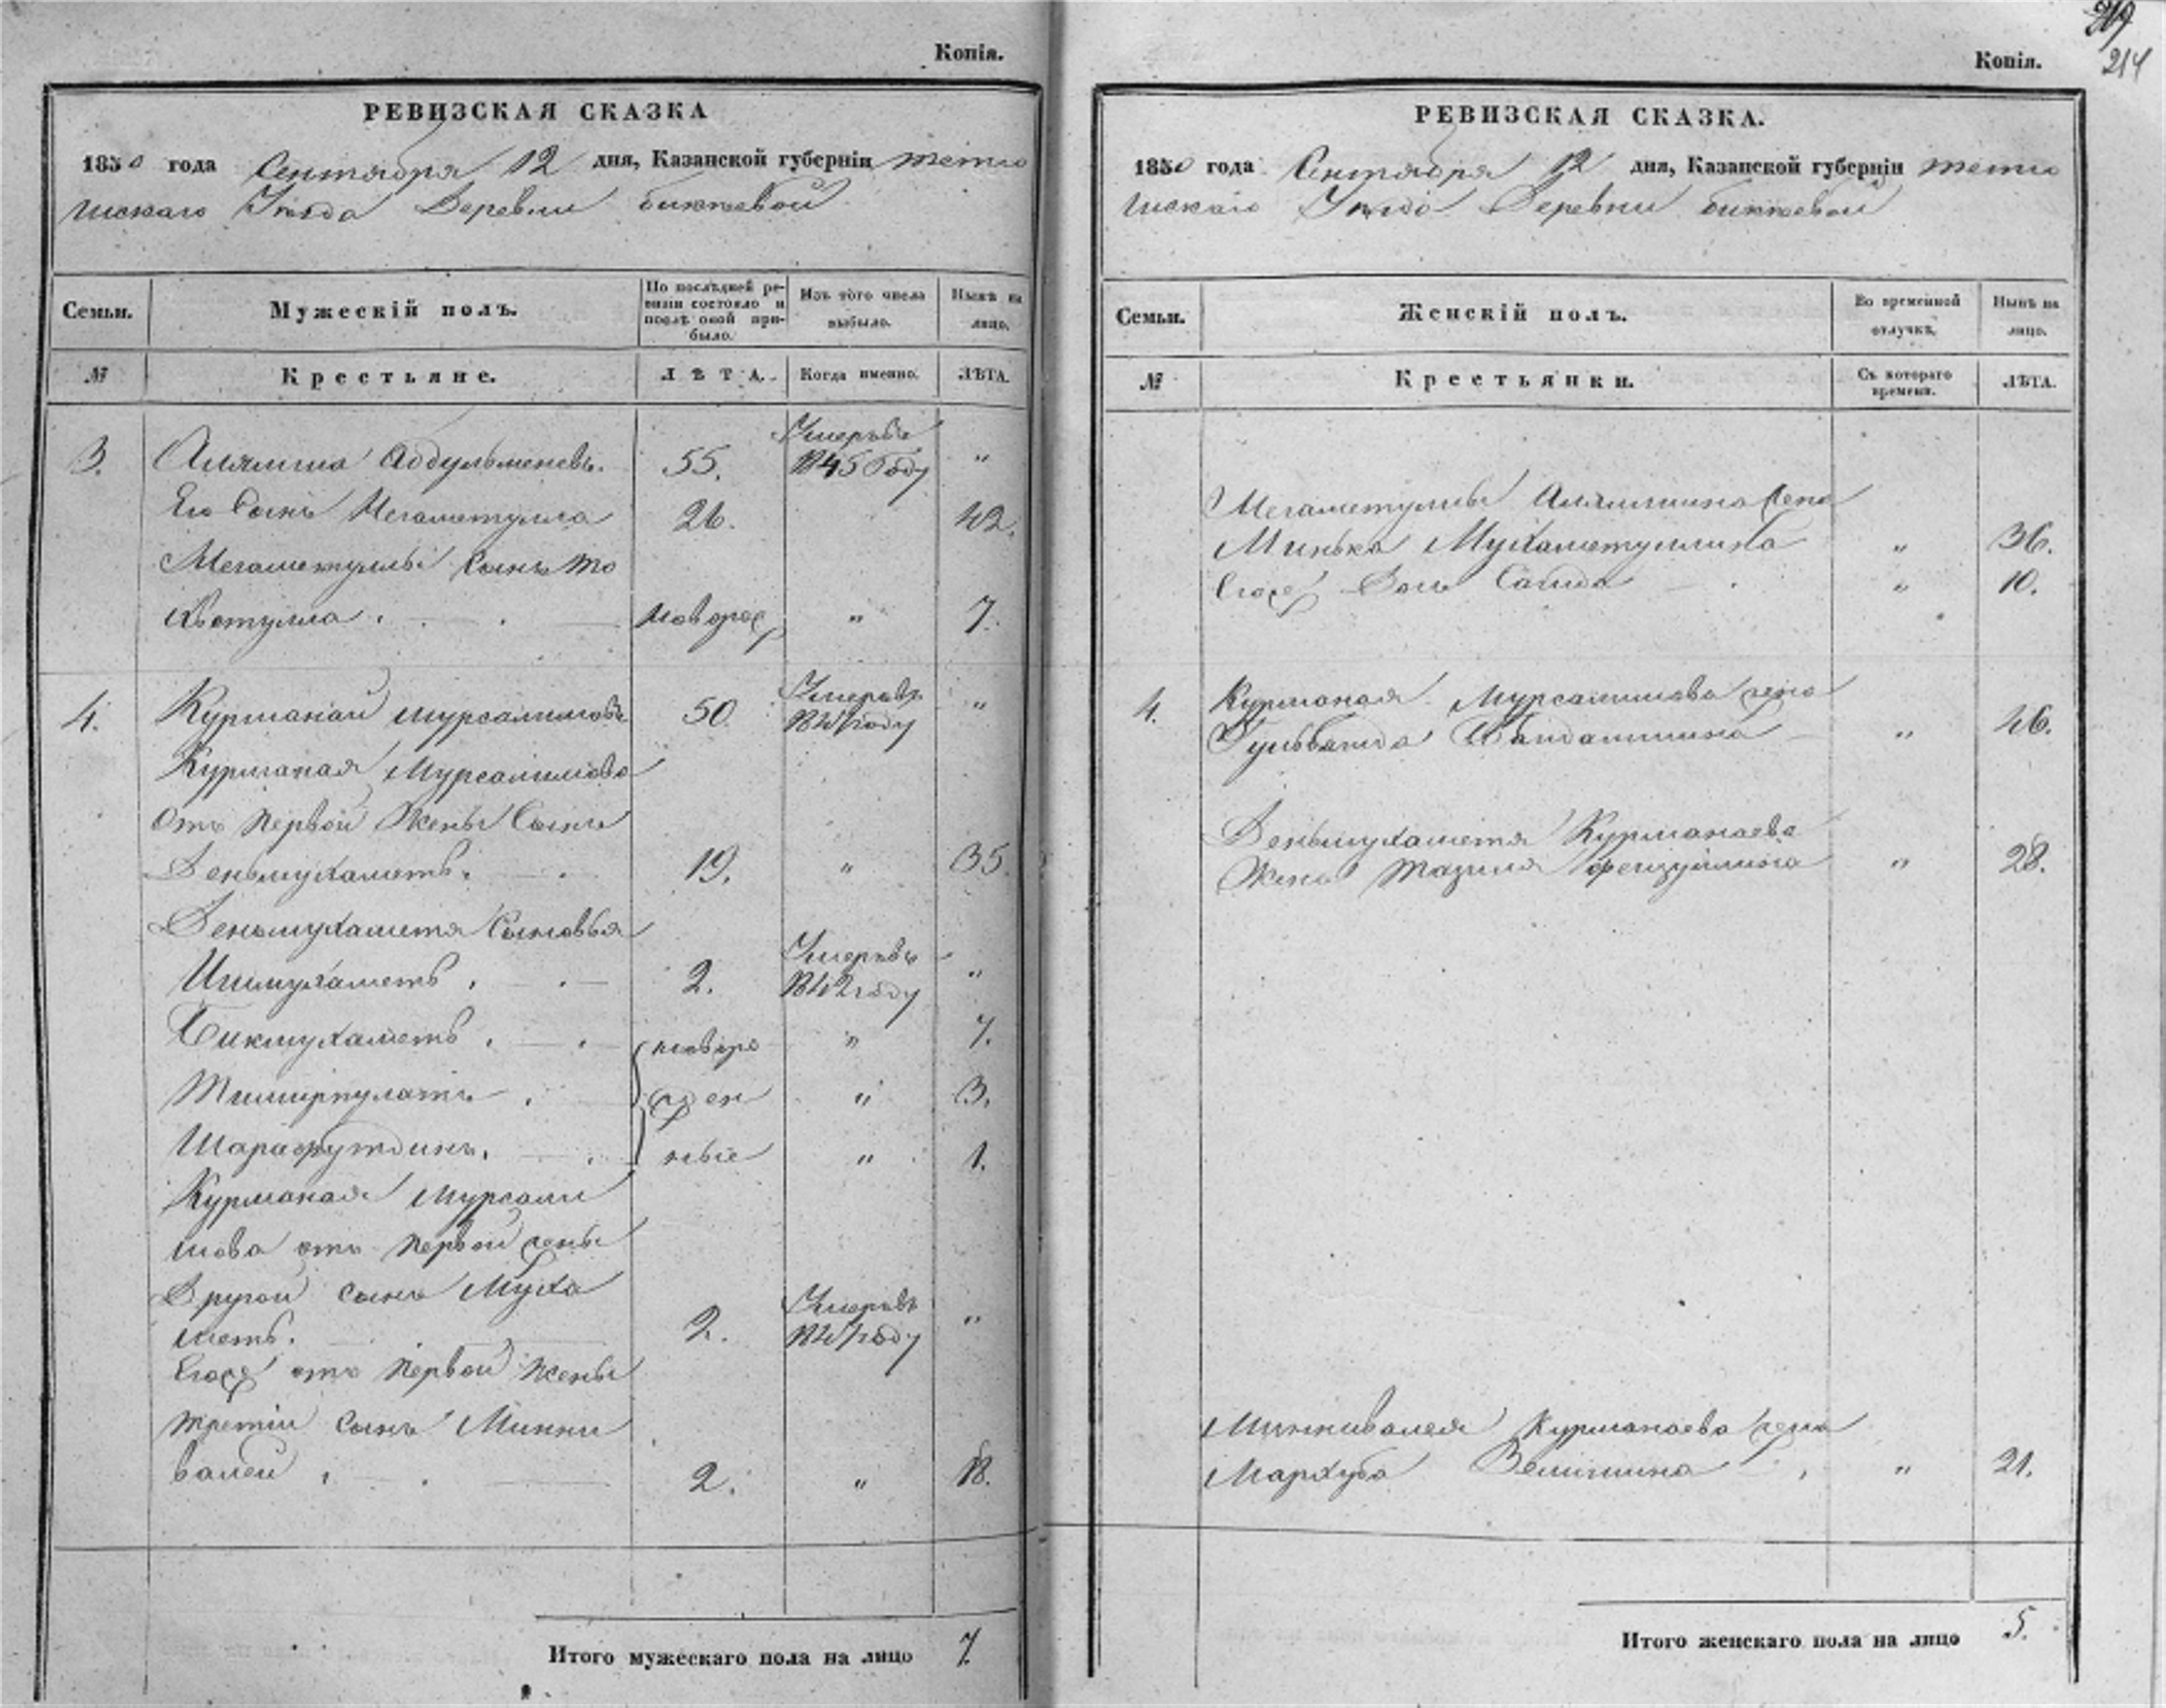 Копія.
РЕВИЗСКАЯ СКАЗКА
1850 года Сентября 12 дня, Казанской губерніи тетю
шскаго Уѣзда Деревни биктѣевой
Семьи. Мужескій полъ. По послѣдней ре-визіи состояло и послѣ оной при-было. Изъ того числа выбыло. Нынѣ на лицо.
№ Крестьяне. ЛѢТА. Когда именно. ЛѢТА.
3. Алямша Абдульменевъ. 55. Умеръ въ 1845 году "
Его Сынъ Мегаметулла 26. 42.
Мегаметуллы Сынъ
новорож " 7.
4. Курманай мурсалимовъ 50. Умеръ въ году "
Курманая Мурсалимова
отъ первой Жены Сынъ
Деньмухаметъ. 19. " 35.
Деньмухаметя Сыновья
Ишмухаметъ. 2. Умеръ въ 1842 году "
Бикмухаметъ. новоро " 7.
Тимирпулатъ. жден " 3.
Шарафутдинъ. ные " 1.
Курманая мурсали
мова отъ первой жены
Другой сынъ Муха
метъ. 2. Умеръ въ году "
Егожъ отъ первой жены
третій Сынъ Минни
валей. 2. " 18.
Итого мужескаго пола на лицо 7.
Копія.
214
РЕВИЗСКАЯ СКАЗКА.
1850 года Сентября 12 дня, Казанской губерніи тетю
шскаго Уѣзда Деревни биктѣевой
Семьи. Женскій полъ. Во временной отлучкѣ. Нынѣ на лицо.
№ Крестьянки. Съ котораго времени. ЛѢТА.
Мегаметуллы Алямшина жена
Минька Мухаметуллина " 36.
Егожъ Дочь Саида " 10.
4. Курманая Мурсалимова жена
" 46.
Деньмухаметя Курманаева
Жена Тазиля фейзуллина " 28.
Миннивалея Курманаева жена
Мархуба " 21.
Итого женскаго пола на лицо 5.